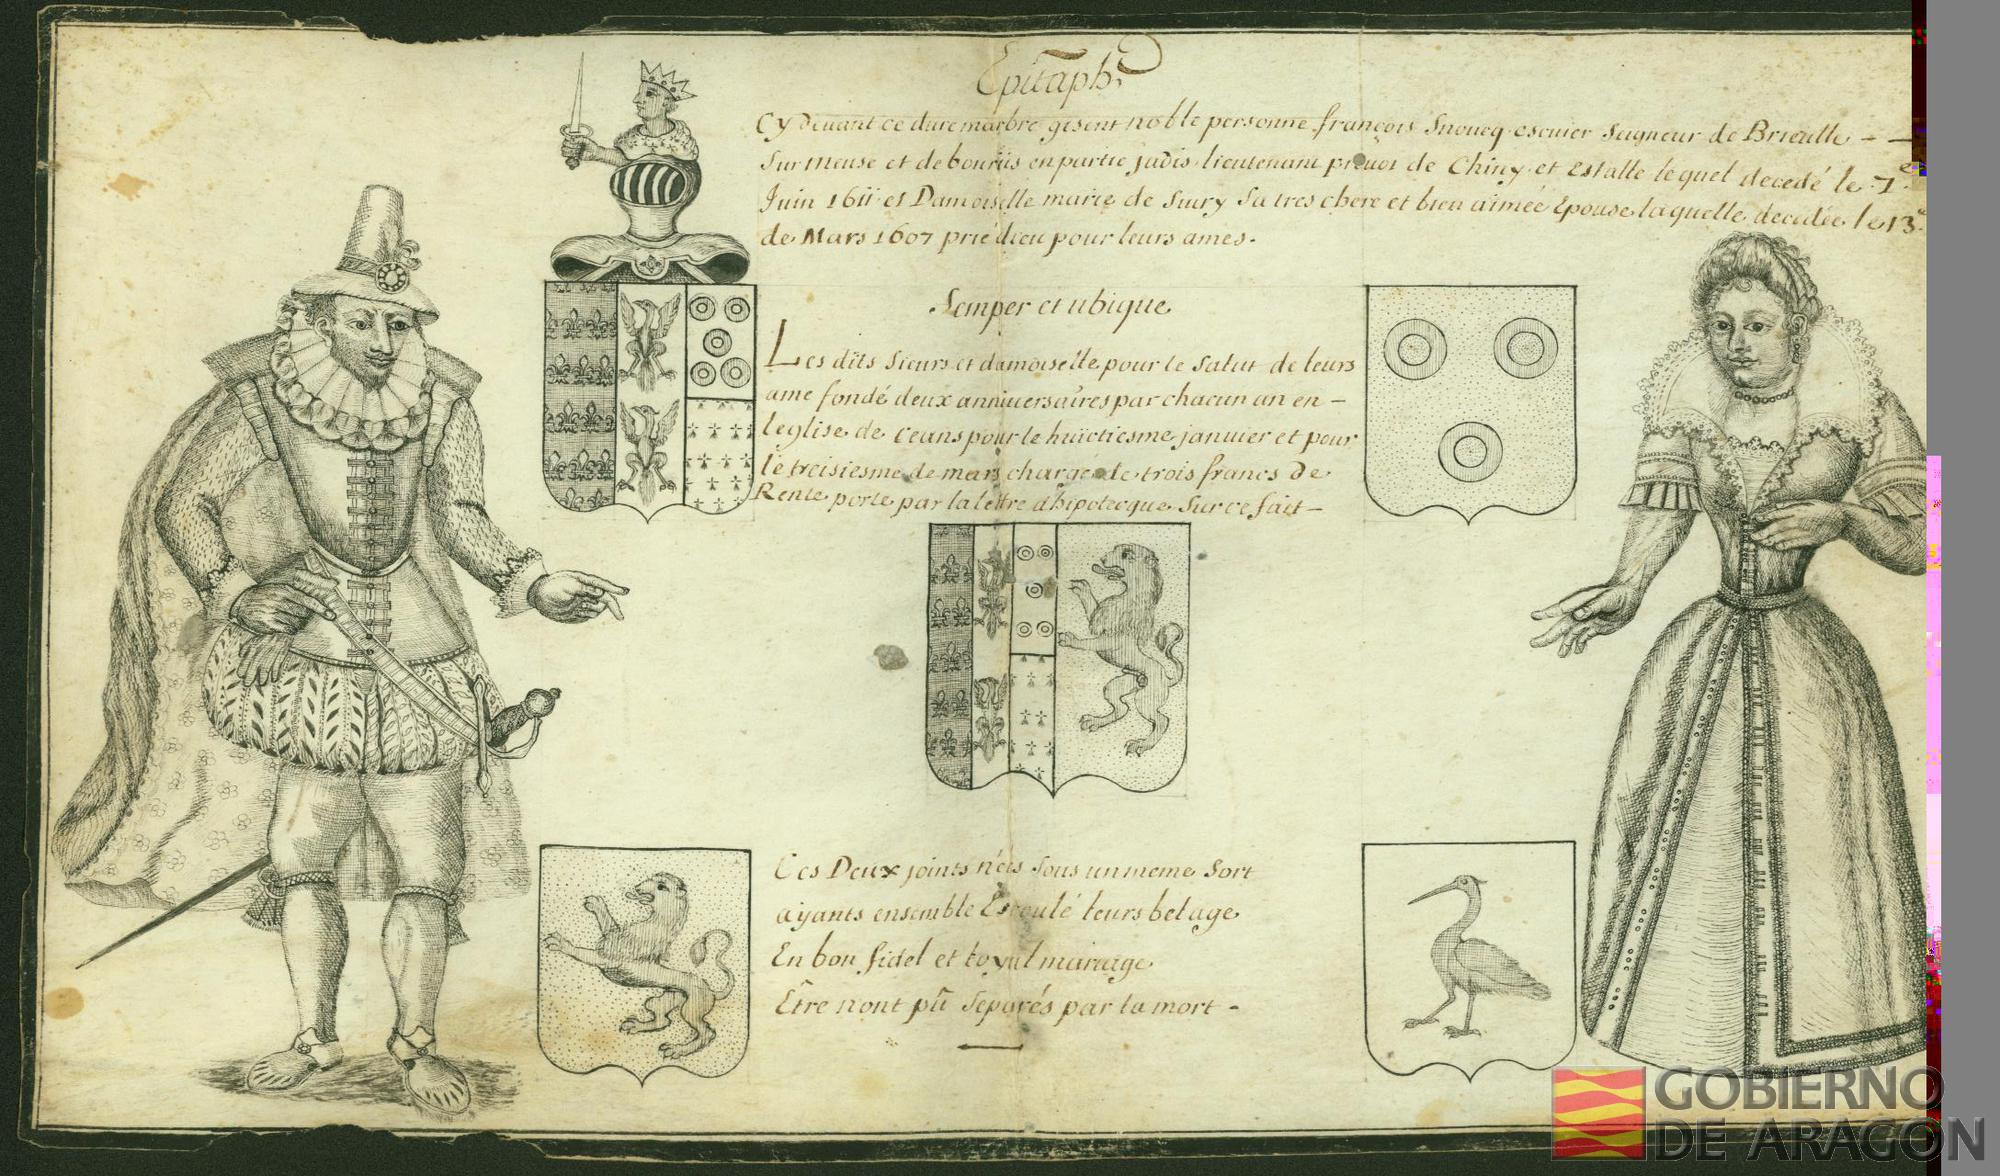 Epitaph
Cy devant ce dure marbre gisent noble personne françois Snoucq escuier Seigneur de Brieulle - -
Sur meuse et de bouriis en partie jadis lieutenant prevot de Chiny et Estalle lequel decedé le 7e
Juin 1611 et Damoiselle marie de Sivry Sa tres chere et bien aimée Epouse laquelle decedée le 13e
de Mars 1607 prie dieu pour leurs ames.
Semper et ubique
Les dits Sieurs et damoiselle pour le Salut de leurs
ame fondé deux anniversaires par chacun an en -
leglise de Ceans pour le huictiesme janvier et pour
le treisiesme de mars chargé de trois francs de
Rente porte par la lettre dhipotecque Sur ce fait -
Ces Deux joints n'éts Sous un meme Sort
aÿants ensemble Escoulé leurs bel age
En bon fidel et loyal mariage
Etre nont pû Separés par la mort -
GOBIERNO
DE ARAGON